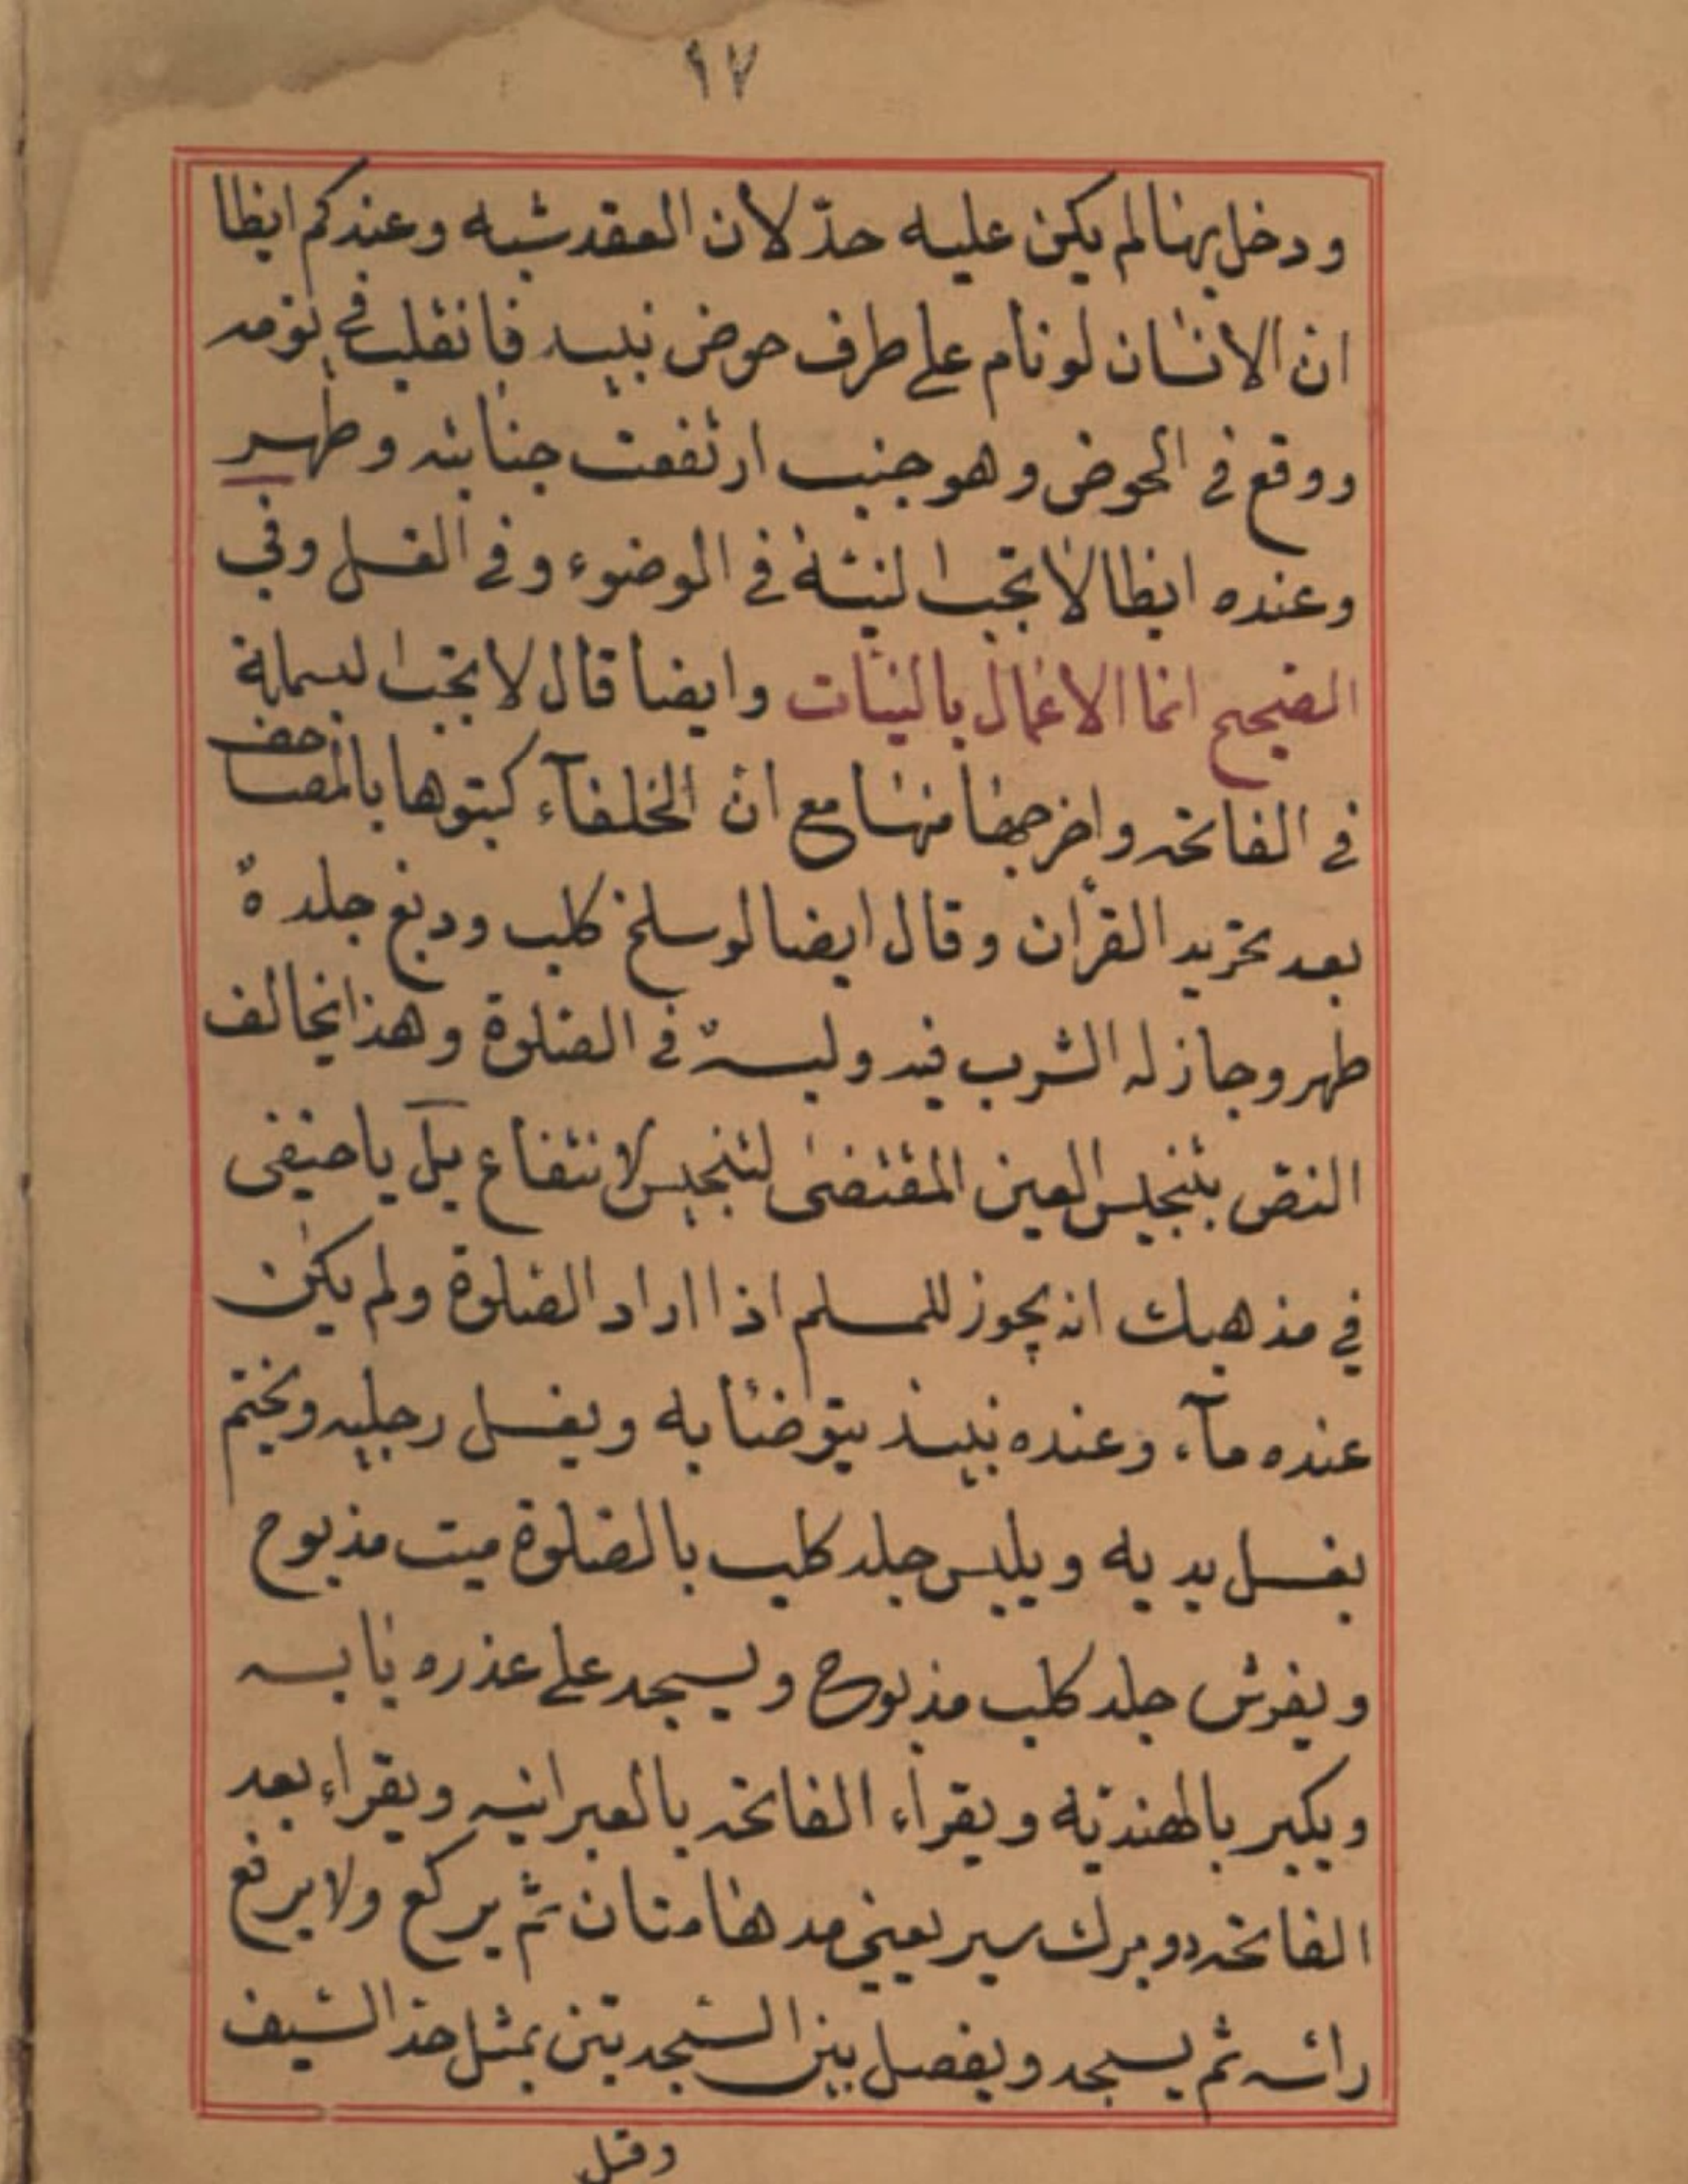 ٩٧
ودخل بها لم يكن عليه حدّ لان العقد شبه وعندكم ايظا
ان الانسان لو نام على طرف حوض نبيد فانقلب في نومه
ووقع في الحوض وهو جنب ارتفعت جنابته وطهر
وعنده ايظا لا تجب النيّة في الوضوء وفي الغسل وفي
الصحيح انما الاعمال بالنيات وايضا قال لا تجب البسملة
في الفاتحه واخرجها منها مع انّ الخلفآء كتبوها بالمصاحف
بعد تحريد القرأن وقال ايضا لو سلخ كلب ودبغ جلده
طهر وجاز له الشرب فيه ولبسه في الصلوة وهذا يخالف
النصّ بتنجيس العين المقتضى لتنجيس لانتفاع بل يا حنيفى
في مذهبك انه يجوز للمسلم اذا اراد الصلوة ولم يكن
عنده مآء وعنده نبيذ يتوضئا به ويغسل رجليه ويختم
بغسل يديه ويلبس جلد كلب بالصلوة ميت مذبوح
ويفرش جلد كلب مذبوح ويسجد على عذره يابسه
ويكبر بالهنديّه ويقراء الفاتحه بالعبرانيه ويقراء بعد
الفاتحه دو برك سبر يعني مدهامتان ثم يركع ولا يرفع
رائسه ثم يسجد ويفصل بين السجدتين بمثل حذ السيف
وقل